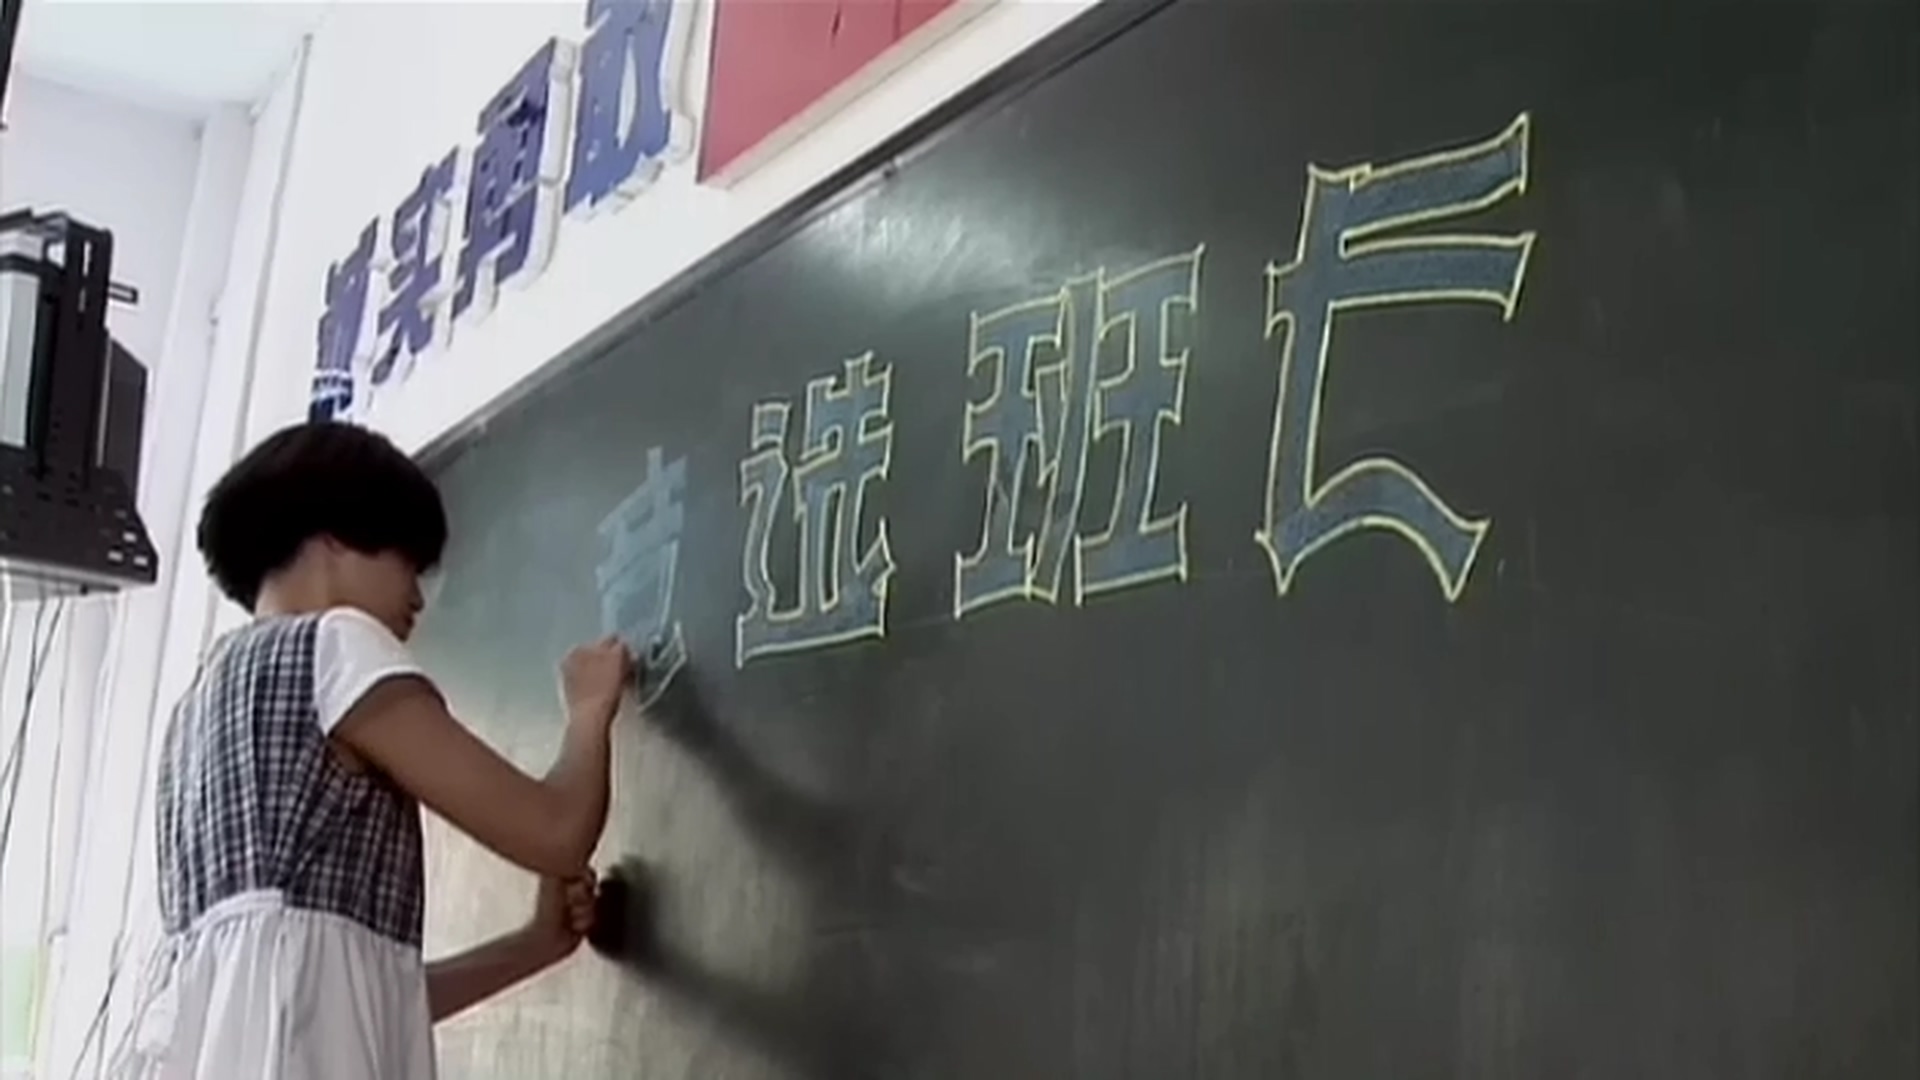 实勇敢
竞选班长